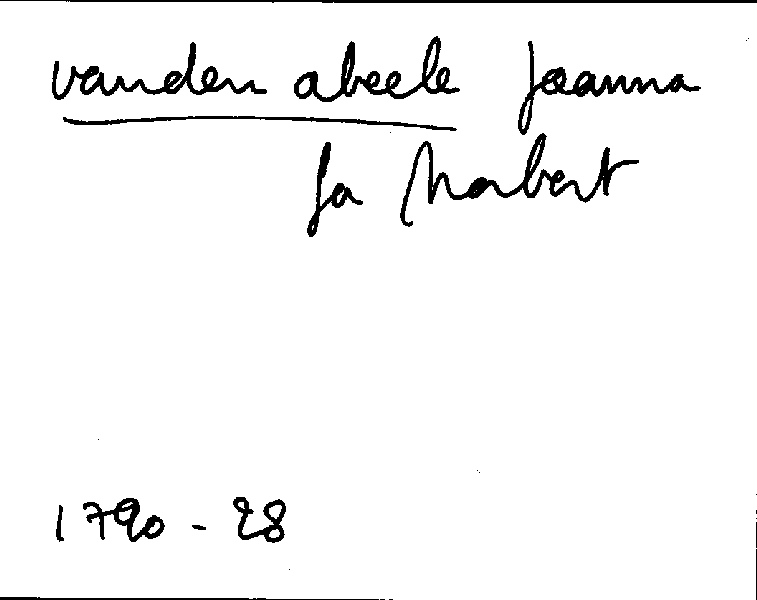 vanden abeele Joanna
fa Norbert
1790 - 28